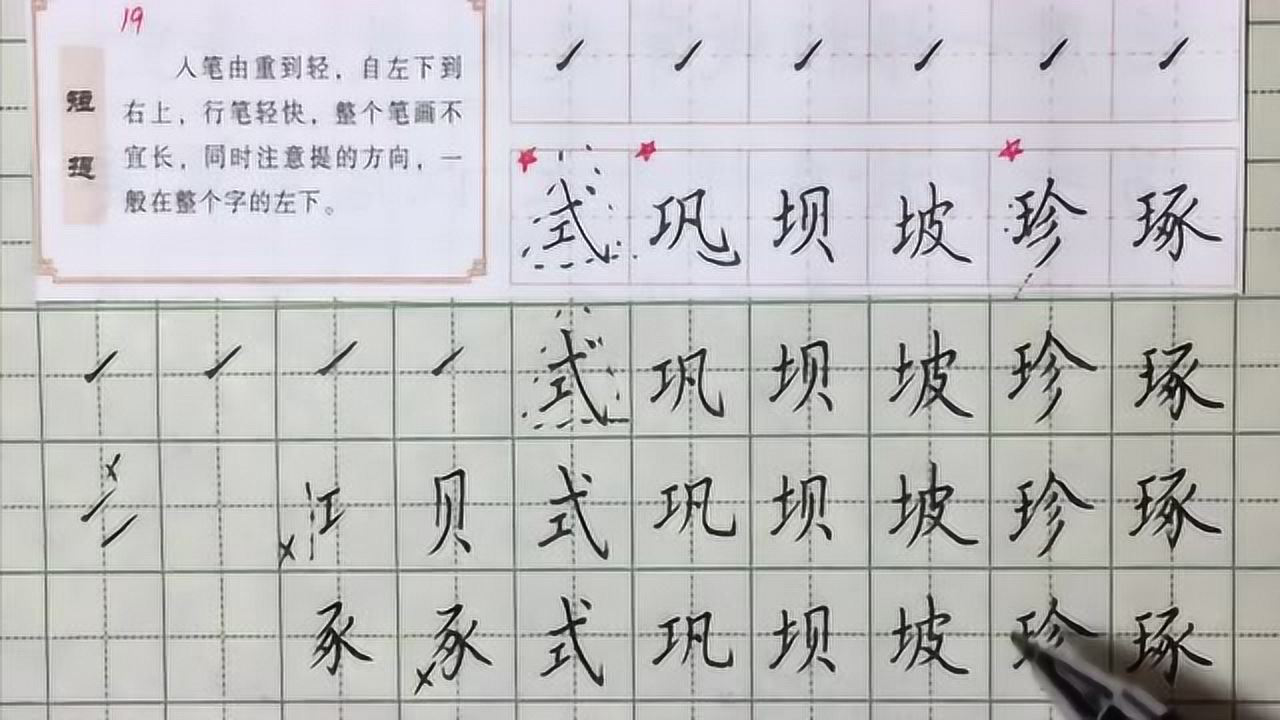 19
短提
人笔由重到轻，自左下到
右上，行笔轻快，整个笔画不
宜长，同时注意提的方向，一
般在整个字的左下。
式 巩 坝 坡 珍 琢
式 巩 坝 坡 珍 琢
江 贝 式 巩 坝 坡 珍 琢
豕 豕 式 巩 坝 坡 珍 琢